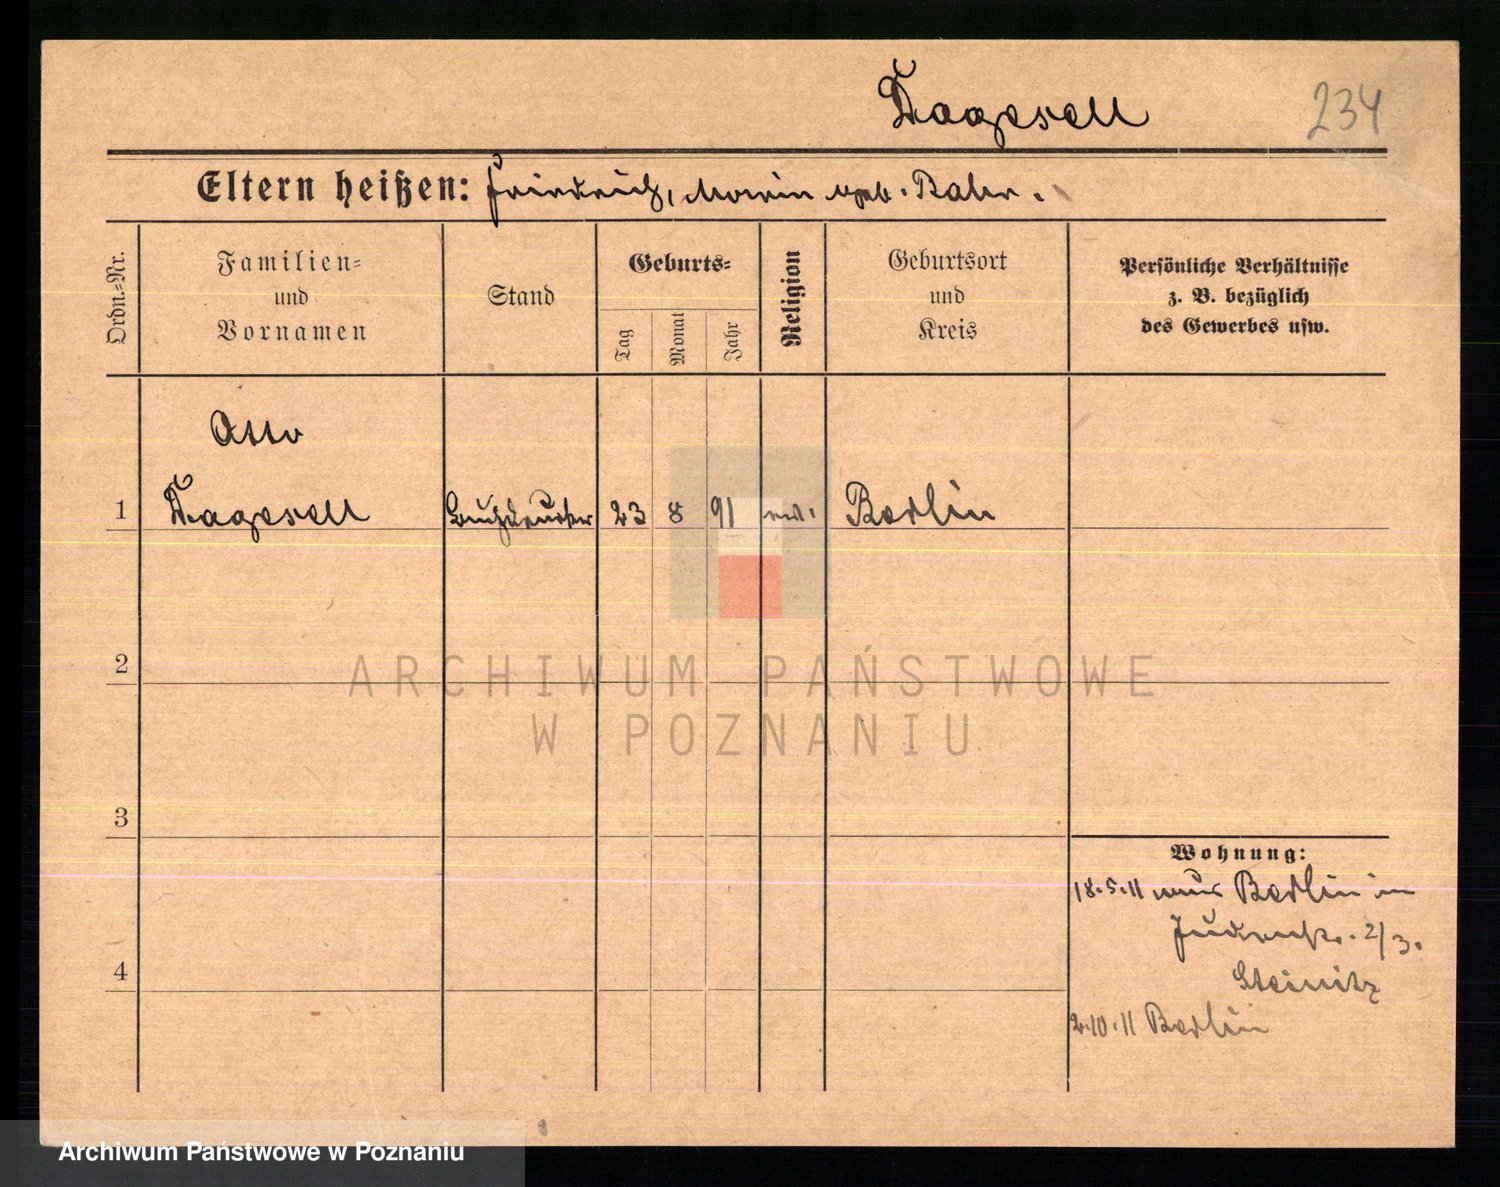 Dagesell 234
Eltern heißen: Friedrich, Marie geb.
Ordn.-Nr.
Familien-
und
Vornamen
Stand
Geburts-
Tag
Monat
Jahr
Religion
Geburtsort
und
Kreis
Persönliche Verhältnisse
z. B. bezüglich
des Gewerbes usw.
Otto
1 Dagesell Buchdrucker 23 8 91 ev. Berlin
2
ARCHIWUM PAŃSTWOWE
W POZNANIU
3
Wohnung:
18.5.11 aus Berlin in
Judenstr. 2/3.
4
Steinitz
2.10.11 Berlin
Archiwum Państwowe w Poznaniu